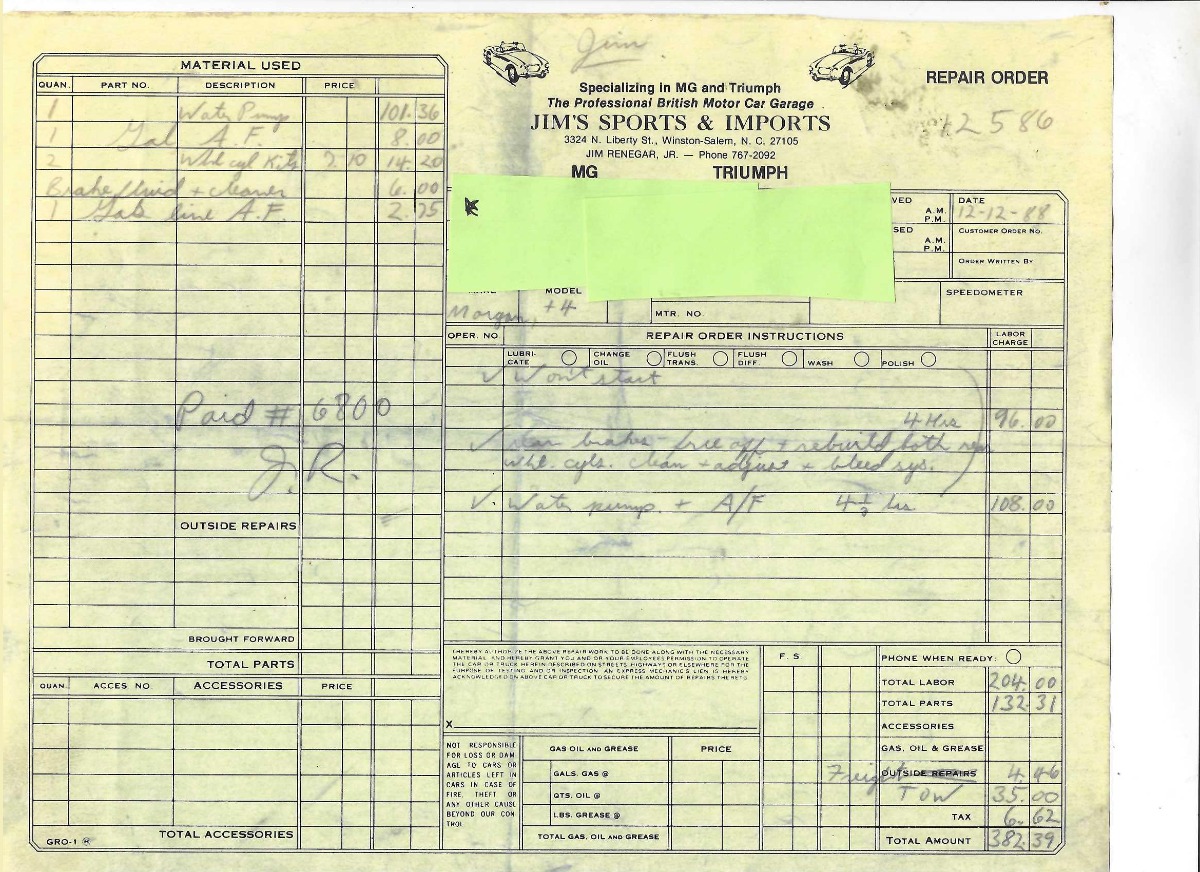 Jim
Specializing in MG and Triumph
The Professional British Motor Car Garage
JIM'S SPORTS & IMPORTS
3324 N. Liberty St., Winston-Salem, N. C. 27105
JIM RENEGAR, JR. — Phone 767-2092
MG TRIUMPH
REPAIR ORDER
12586
MATERIAL USED
QUAN. PART NO. DESCRIPTION PRICE
1 Water Pump 101.36
1 Gal A.F. 8.00
2 Whl cyl Kits 7.10 14.20
Brake fluid + cleaner 6.00
1 Gas line A.F. 2.75
Paid # 6800
J.R.
OUTSIDE REPAIRS
BROUGHT FORWARD
TOTAL PARTS
QUAN. ACCES NO. ACCESSORIES PRICE
TOTAL ACCESSORIES
GRO-1
VED A.M. P.M.
DATE 12-12-88
SED A.M. P.M.
CUSTOMER ORDER NO.
ORDER WRITTEN BY
MODEL
Morgan, +4
MTR. NO.
SPEEDOMETER
OPER. NO. REPAIR ORDER INSTRUCTIONS LABOR CHARGE
LUBRI-CATE CHANGE OIL FLUSH TRANS. FLUSH DIFF. WASH POLISH
✓ Won't start
4 Hrs 96.00
✓ rear brakes - free off + rebuild both rear
whl. cyls. clean + adjust + bleed sys.
✓. Water pump. + A/F 4 1/2 hrs 108.00
I HEREBY AUTHORIZE THE ABOVE REPAIR WORK TO BE DONE ALONG WITH THE NECESSARY
MATERIAL AND HEREBY GRANT YOU AND OR YOUR EMPLOYEES PERMISSION TO OPERATE
THE CAR OR TRUCK HEREIN DESCRIBED ON STREETS, HIGHWAYS OR ELSEWHERE FOR THE
PURPOSE OF TESTING AND OR INSPECTION. AN EXPRESS MECHANIC'S LIEN IS HEREBY
ACKNOWLEDGED ON ABOVE CAR OR TRUCK TO SECURE THE AMOUNT OF REPAIRS THERETO.
X
NOT RESPONSIBLE
FOR LOSS OR DAM-
AGE TO CARS OR
ARTICLES LEFT IN
CARS IN CASE OF
FIRE, THEFT OR
ANY OTHER CAUSE
BEYOND OUR CON-
TROL
GAS OIL AND GREASE PRICE
GALS. GAS @
QTS. OIL @
LBS. GREASE @
TOTAL GAS, OIL AND GREASE
F. S
PHONE WHEN READY:
TOTAL LABOR 204.00
TOTAL PARTS 132.31
ACCESSORIES
GAS, OIL & GREASE
Freight OUTSIDE REPAIRS 4.46
TOW 35.00
TAX 6.62
TOTAL AMOUNT 382.39